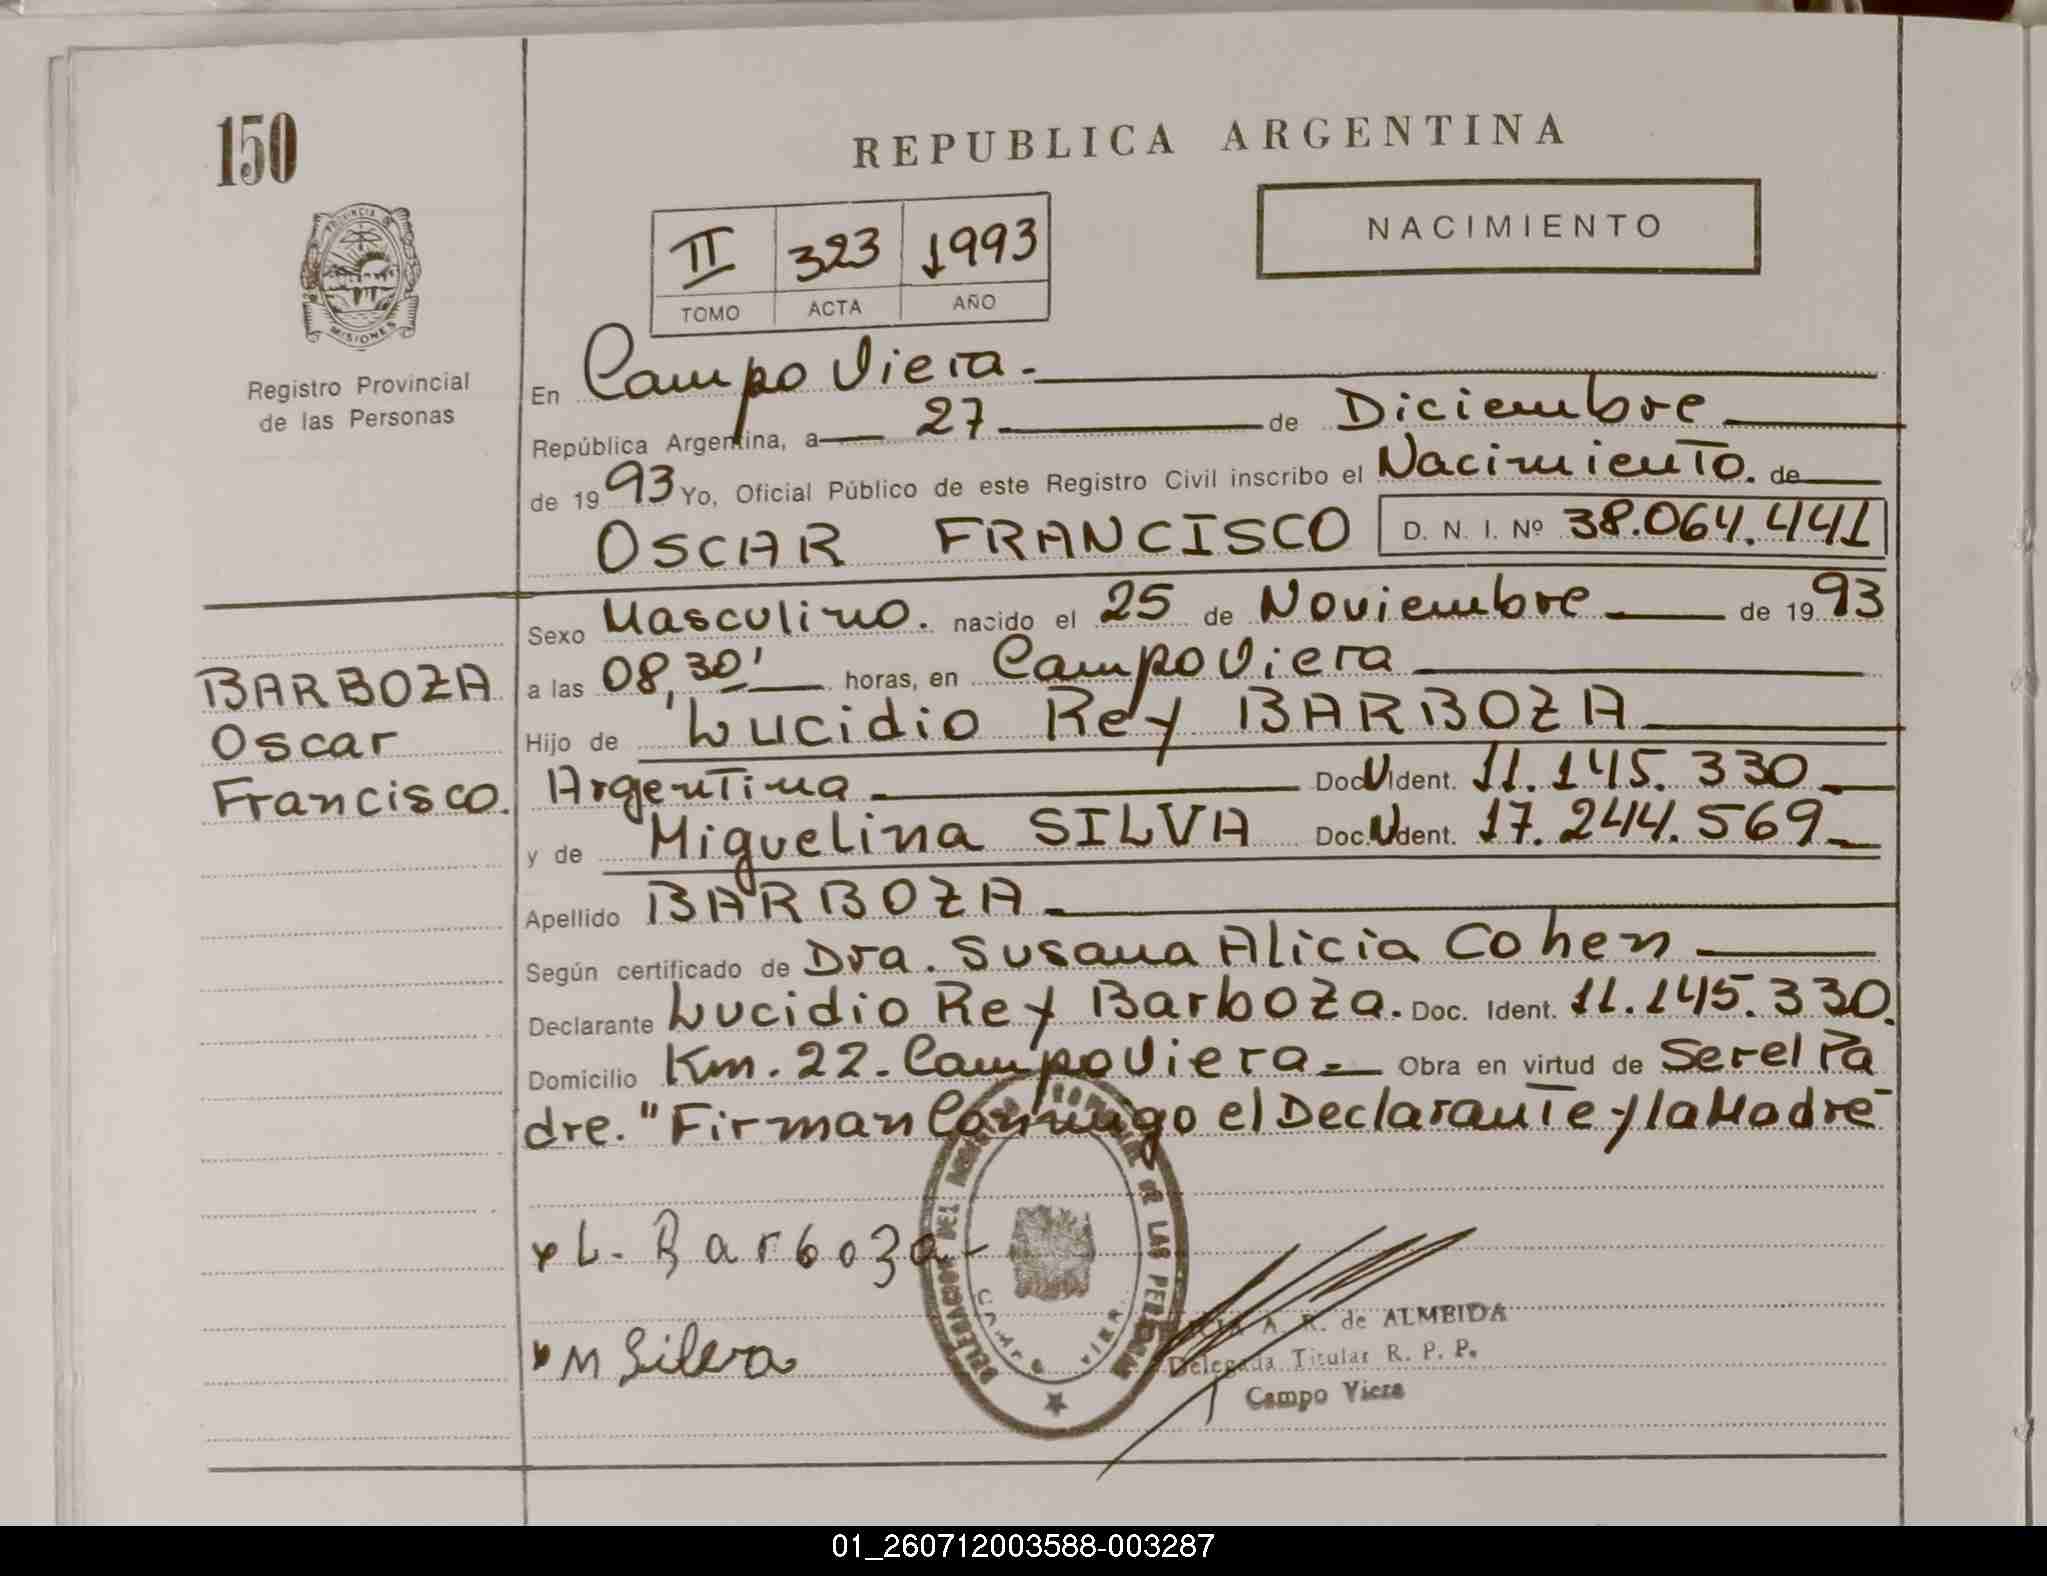 150
REPUBLICA ARGENTINA
NACIMIENTO
II 323 1993
TOMO ACTA AÑO
PROVINCIA DE
MISIONES
Registro Provincial
de las Personas
En Campo Viera.
República Argentina, a 27 de Diciembre
de 1993 Yo, Oficial Público de este Registro Civil inscribo el Nacimiento. de
OSCAR FRANCISCO D. N. I. Nº 38.064.441
Sexo Masculino. nacido el 25 de Noviembre de 1993
a las 08,30' horas, en Campo Viera
Hijo de Lucidio Rey BARBOZA
Argentina Doc. Ident. 11.145.330
y de Miguelina SILVA Doc. Ident. 17.244.569
Apellido BARBOZA
Según certificado de Dra. Susana Alicia Cohen
Declarante Lucidio Rey Barboza. Doc. Ident. 11.145.330.
Domicilio Km. 22. Campo Viera Obra en virtud de Ser el Pa
dre. "Firman Conmigo el Declarante y la Madre"
BARBOZA
Oscar
Francisco.
x L. Barboza
x M Silva
DELEGACION DEL REGISTRO PROVINCIAL DE LAS PERSONAS
A. R. de ALMEIDA
Delegada Titular R. P. P.
Campo Viera
01_260712003588-003287